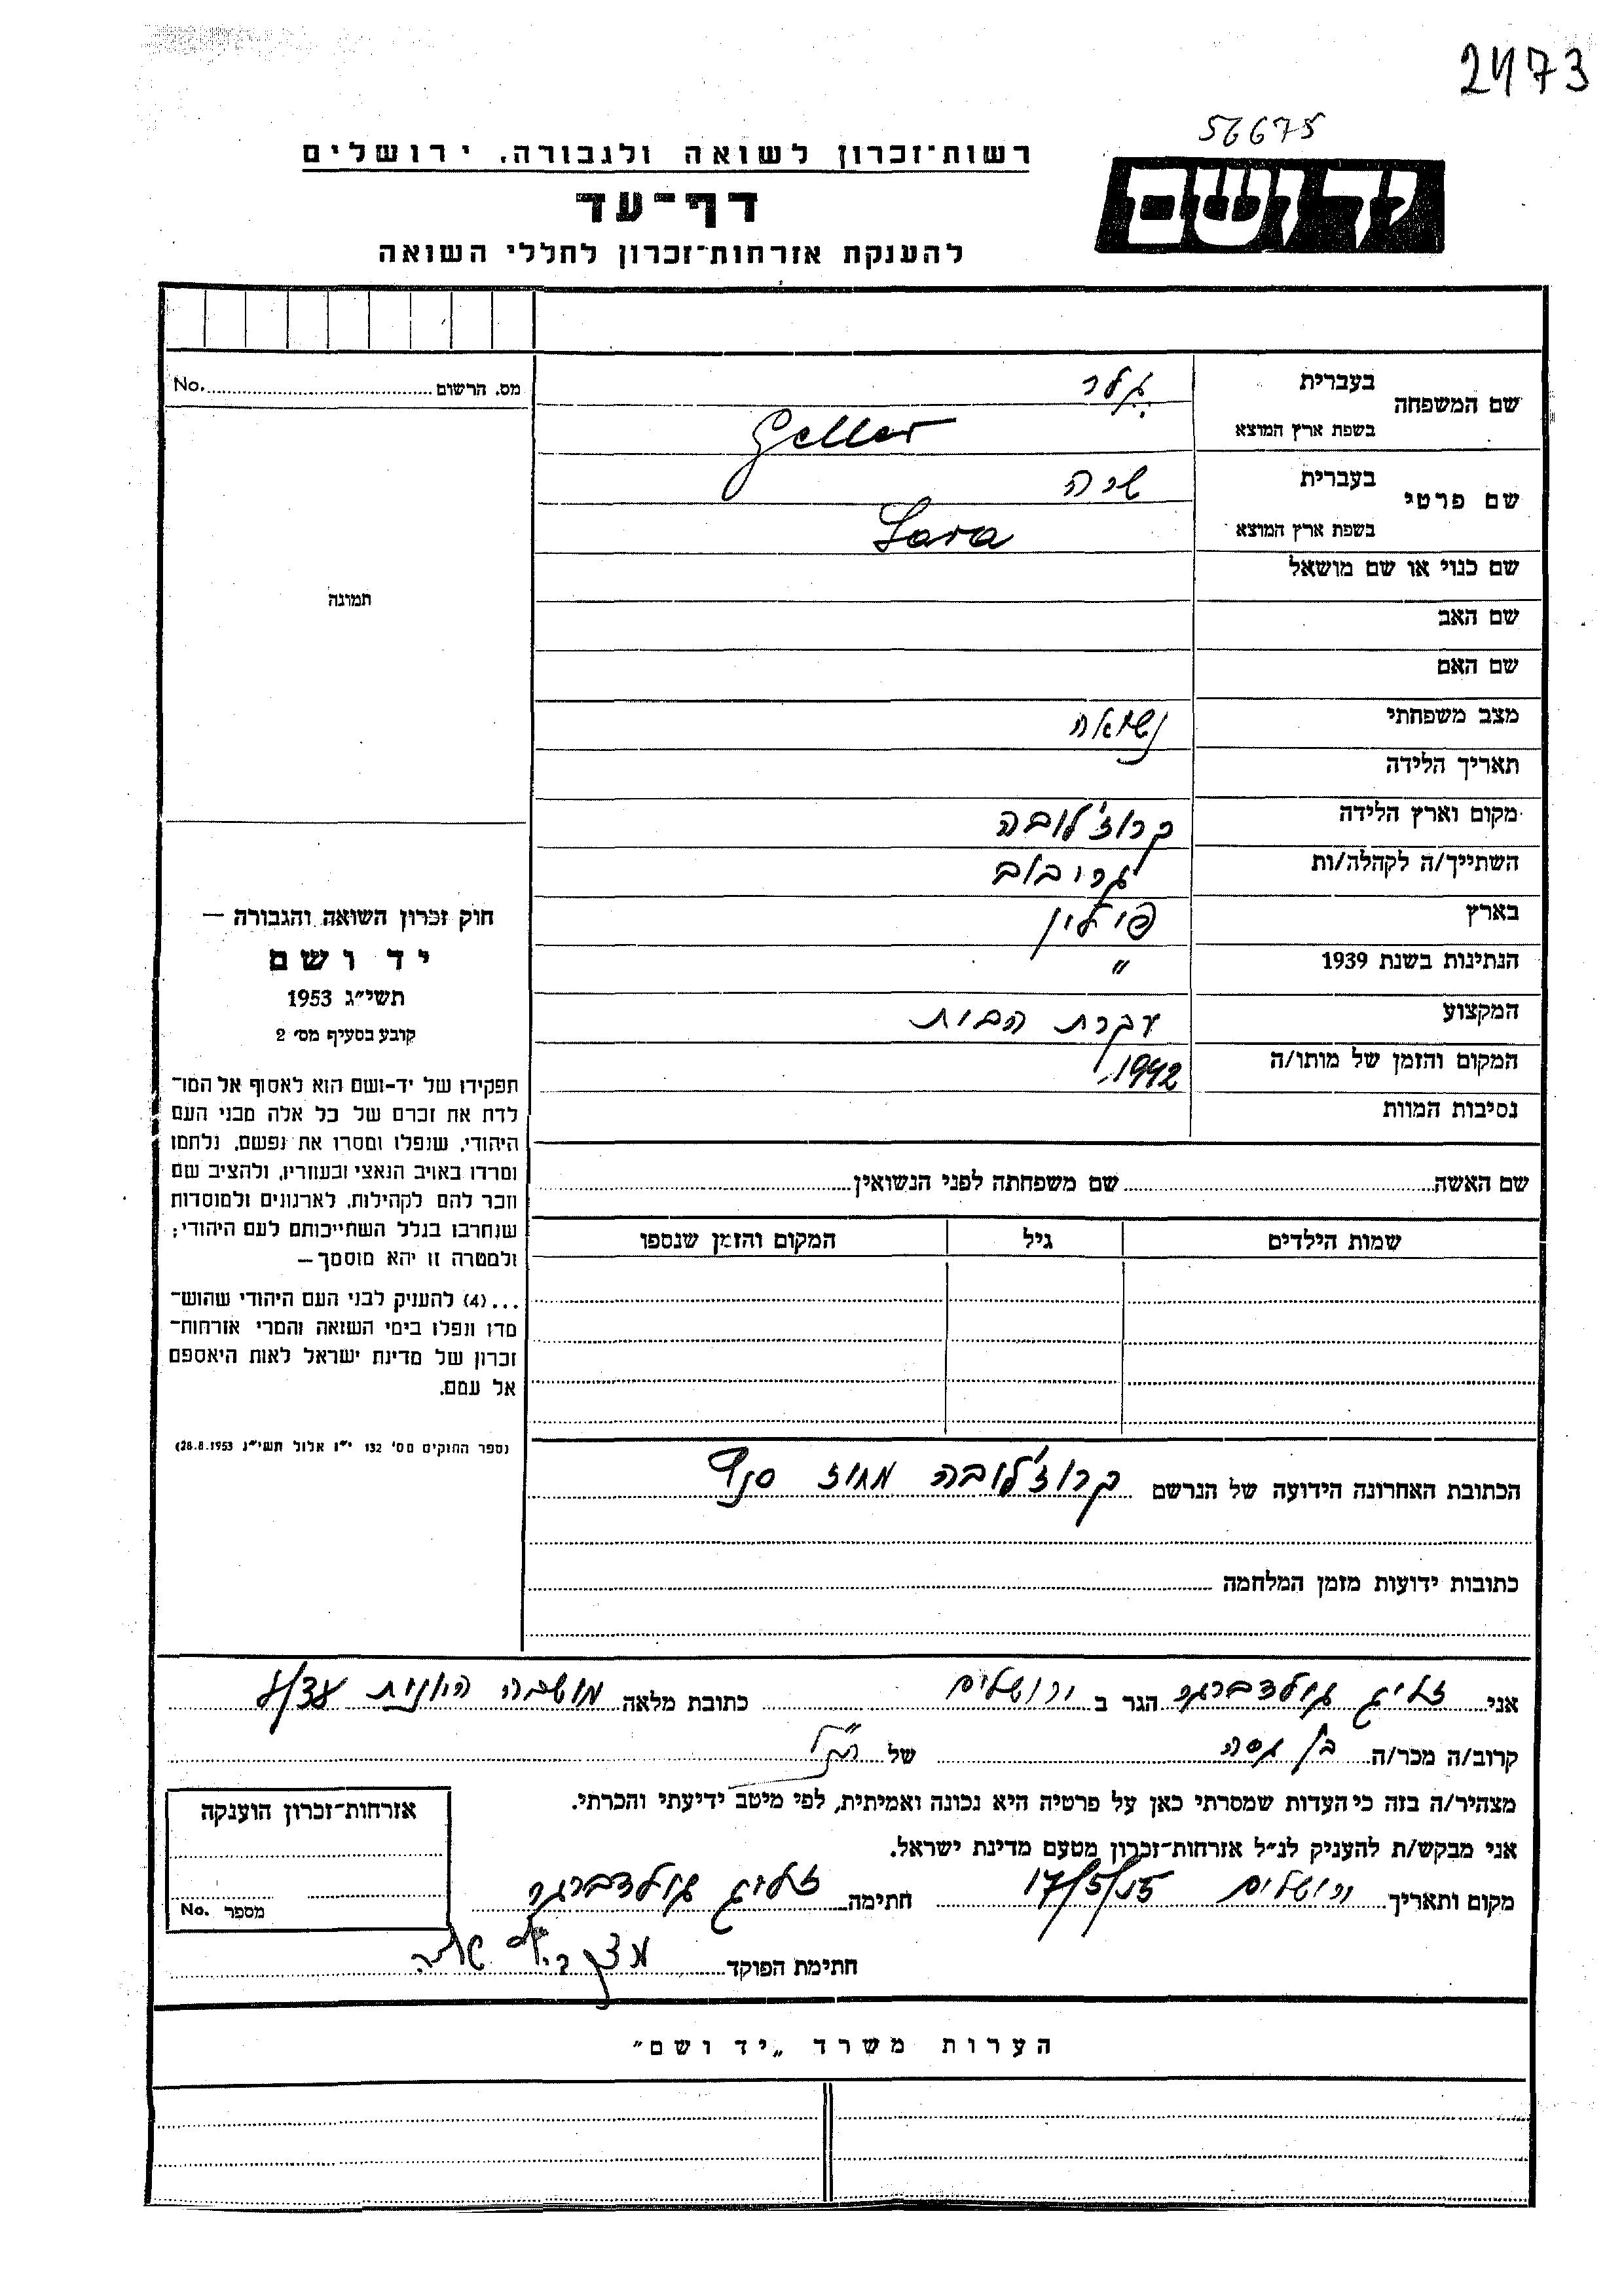 2473
56675
יד ושם
רשות־זכרון לשואה ולגבורה, ירושלים
דף־עד
להענקת אזרחות־זכרון לחללי השואה
מס. הרשום No.
תמונה
שם המשפחה בעברית גלר
בשפת ארץ המוצא Geller
שם פרטי בעברית שרה
בשפת ארץ המוצא Sara
שם כנוי או שם מושאל
שם האב
שם האם
מצב משפחתי נשואה
תאריך הלידה
מקום וארץ הלידה קרוז'לובה
השתייך/ה לקהלה/ות גריבוב
בארץ פולין
הנתינות בשנת 1939 "
המקצוע עקרת הבית
המקום והזמן של מותו/ה 1942
נסיבות המוות
שם האשה שם משפחתה לפני הנשואין
שמות הילדים גיל המקום והזמן שנספו
הכתובת האחרונה הידועה של הנרשם קרוז'לובה מחוז סנץ
כתובות ידועות מזמן המלחמה
חוק זכרון השואה והגבורה —
יד ושם
תשי"ג 1953
קובע בסעיף מס' 2
תפקידו של יד-ושם הוא לאסוף אל המו־
לדת את זכרם של כל אלה מבני העם
היהודי, שנפלו ומסרו את נפשם, נלחמו
ומרדו באויב הנאצי ובעוזריו, ולהציב שם
וזכר להם לקהילות, לארגונים ולמוסדות
שנחרבו בגלל השתייכותם לעם היהודי;
ולמטרה זו יהא מוסמך —
...(4) להענוק לבני העם היהודי שהוש־
מדו ונפלו בימי השואה והמרי אזרחות־
זכרון של מדינת ישראל לאות היאספם
אל עמם.
(ספר החוקים מס' 132 י"ז אלול תשי"ג 28.8.1953)
אני זליג גולדברגר הגר ב ירושלים כתובת מלאה מושבה היונית
קרוב/ה מכר/ה בן גיסה של הנ"ל
מצהיר/ה בזה כי העדות שמסרתי כאן על פרטיה היא נכונה ואמיתית, לפי מיטב ידיעתי והכרתי.
אני מבקש/ת להעניק לנ"ל אזרחות־זכרון מטעם מדינת ישראל.
מקום ותאריך ירושלים 17/5/55 חתימה זליג גולדברגר
חתימת הפוקד
אזרחות־זכרון הוענקה
מספר No.
הערות משרד „יד ושם"